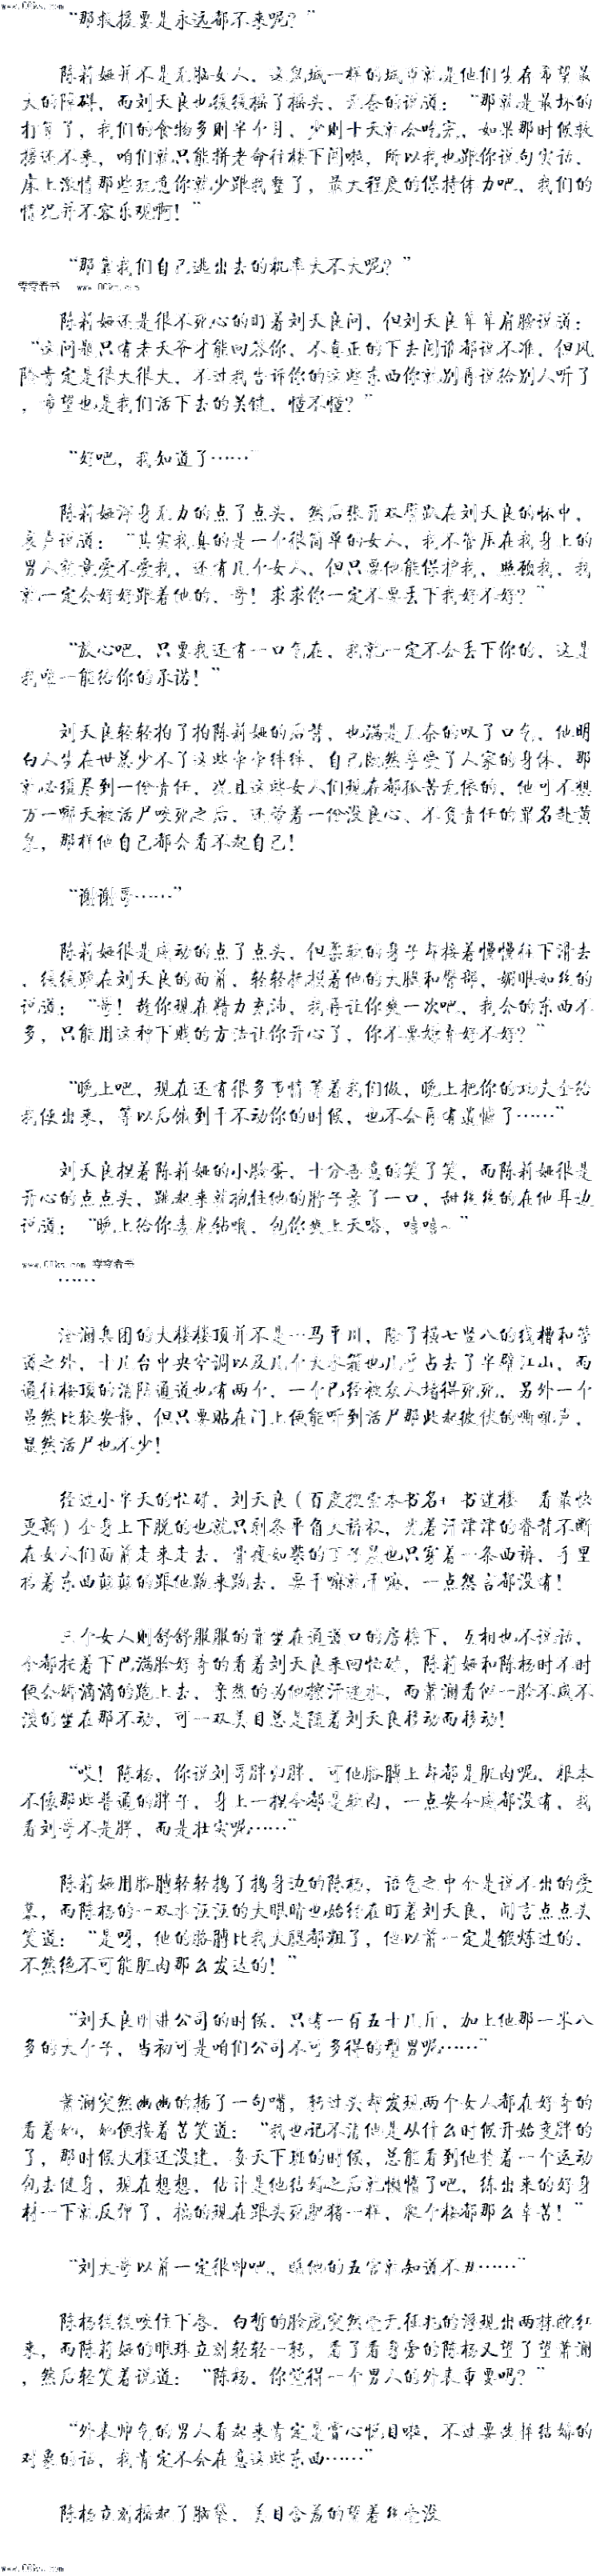 www.00ks.com
“那救援要是永远都不来呢？”
陈莉娅并不是无脑女人，这鬼城一样的城市就是他们生存希望最
大的障碍，而刘天良也缓缓摇了摇头，无奈的说道：“那就是最坏的
打算了，我们的食物多则半个月，少则十天就会吃完，如果那时候救
援还不来，咱们就只能拼老命往楼下闯啦，所以我也跟你说句实话，
床上激情那些玩意你就少跟我整了，最大程度的保持体力吧，我们的
情况并不容乐观啊！”
“那靠我们自己逃出去的机率大不大呢？”
零零看书 www.00ks.com
陈莉娅还是很不死心的盯着刘天良问，但刘天良耸耸肩膀说道：
“这问题只有老天爷才能回答你，不真正的下去闯谁都说不准，但风
险肯定是很大很大，不过我告诉你的这些东西你就别再说给别人听了
，希望也是我们活下去的关键，懂不懂？”
“好吧，我知道了……”
陈莉娅浑身无力的点了点头，然后张开双臂趴在刘天良的怀中，
哀声说道：“其实我真的是一个很简单的女人，我不管压在我身上的
男人究竟爱不爱我，还有几个女人，但只要他能保护我，照顾我，我
就一定会好好跟着他的，哥！求求你一定不要丢下我好不好？”
“放心吧，只要我还有一口气在，我就一定不会丢下你的，这是
我唯一能给你的承诺！”
刘天良轻轻拍了拍陈莉娅的后背，也满是无奈的叹了口气，他明
白人生在世总少不了这些牵牵绊绊，自己既然享受了人家的身体，那
就必须尽到一份责任，况且这些女人们现在都孤苦无依的，他可不想
万一哪天被活尸咬死之后，还带着一份没良心、不负责任的罪名赴黄
泉，那样他自己都会看不起自己！
“谢谢哥……”
陈莉娅很是感动的点了点头，但柔软的身子却接着慢慢往下滑去
，缓缓跪在刘天良的面前，轻轻抚摸着他的大腿和臀部，媚眼如丝的
说道：“哥！趁你现在精力充沛，我再让你爽一次吧，我会的东西不
多，只能用这种下贱的方法让你开心了，你不要嫌弃好不好？”
“晚上吧，现在还有很多事情等着我们做，晚上把你的功夫全给
我使出来，等以后饿到干不动你的时候，也不会再有遗憾了……”
刘天良捏着陈莉娅的小脸蛋，十分善意的笑了笑，而陈莉娅很是
开心的点点头，跳起来就搂住他的脖子亲了一口，甜丝丝的在他耳边
说道：“晚上给你毒龙钻哦，包你爽上天咯，嘻嘻~”
www.00ks.com 零零看书
……
澄澜集团的大楼楼顶并不是一马平川，除了横七竖八的线槽和管
道之外，十几台中央空调以及几个大水箱也几乎占去了半壁江山，而
通往楼顶的消防通道也有两个，一个已经被众人堵得死死，另外一个
虽然比较安静，但只要贴在门上便能听到活尸那此起彼伏的嘶吼声，
显然活尸也不少！
经过小半天的忙碌，刘天良（百度搜索本书名+ 书迷楼 看最快
更新）全身上下脱的也就只剩条平角大裤衩，光着汗津津的脊背不断
在女人们面前走来走去，骨瘦如柴的丁子晨也只穿着一条西裤，手里
拎着东西颠颠的跟他跑来跑去，要干嘛就干嘛，一点怨言都没有！
三个女人则舒舒服服的靠坐在通道口的房檐下，互相也不说话，
全都托着下巴满脸好奇的看着刘天良来回忙碌，陈莉娅和陈杨时不时
便会娇滴滴的跑上去，亲热的为他擦汗递水，而萧澜看似一脸不咸不
淡的坐在那不动，可一双美目总是随着刘天良移动而移动！
“哎！陈杨，你说刘哥胖归胖，可他胳膊上却都是肌肉呢，根本
不像那些普通的胖子，身上一捏全都是软肉，一点安全感都没有，我
看刘哥不是胖，而是壮实呢……”
陈莉娅用胳膊轻轻捣了捣身边的陈杨，语气之中全是说不出的爱
慕，而陈杨的一双水汪汪的大眼睛也始终在盯着刘天良，闻言点点头
笑道：“是呀，他的胳膊比我大腿都粗了，他以前一定是锻炼过的，
不然绝不可能肌肉那么发达的！”
“刘天良刚进公司的时候，只有一百五十几斤，加上他那一米八
多的大个子，当初可是咱们公司不可多得的型男呢……”
萧澜突然幽幽的插了一句嘴，转过头却发现两个女人都在好奇的
看着她，她便接着苦笑道：“我也记不清他是从什么时候开始变胖的
了，那时候大楼还没建，每天下班的时候，总能看到他拎着一个运动
包去健身，现在想想，估计是他结婚之后就懒惰了吧，练出来的好身
材一下就反弹了，搞的现在跟头死肥猪一样，爬个楼都那么辛苦！”
“刘大哥以前一定很帅吧，瞧他的五官就知道不丑……”
陈杨缓缓咬住下唇，白皙的脸庞突然毫无征兆的浮现出两抹酡红
来，而陈莉娅的眼珠立刻轻轻一转，看了看身旁的陈杨又望了望萧澜
，然后轻笑着说道：“陈杨，你觉得一个男人的外表重要吗？”
“外表帅气的男人看起来肯定是赏心悦目啦，不过要选择结婚的
对象的话，我肯定不会在意这些东西……”
陈杨立刻摇起了脑袋，美目含羞的望着丝毫没
www.00ks.com